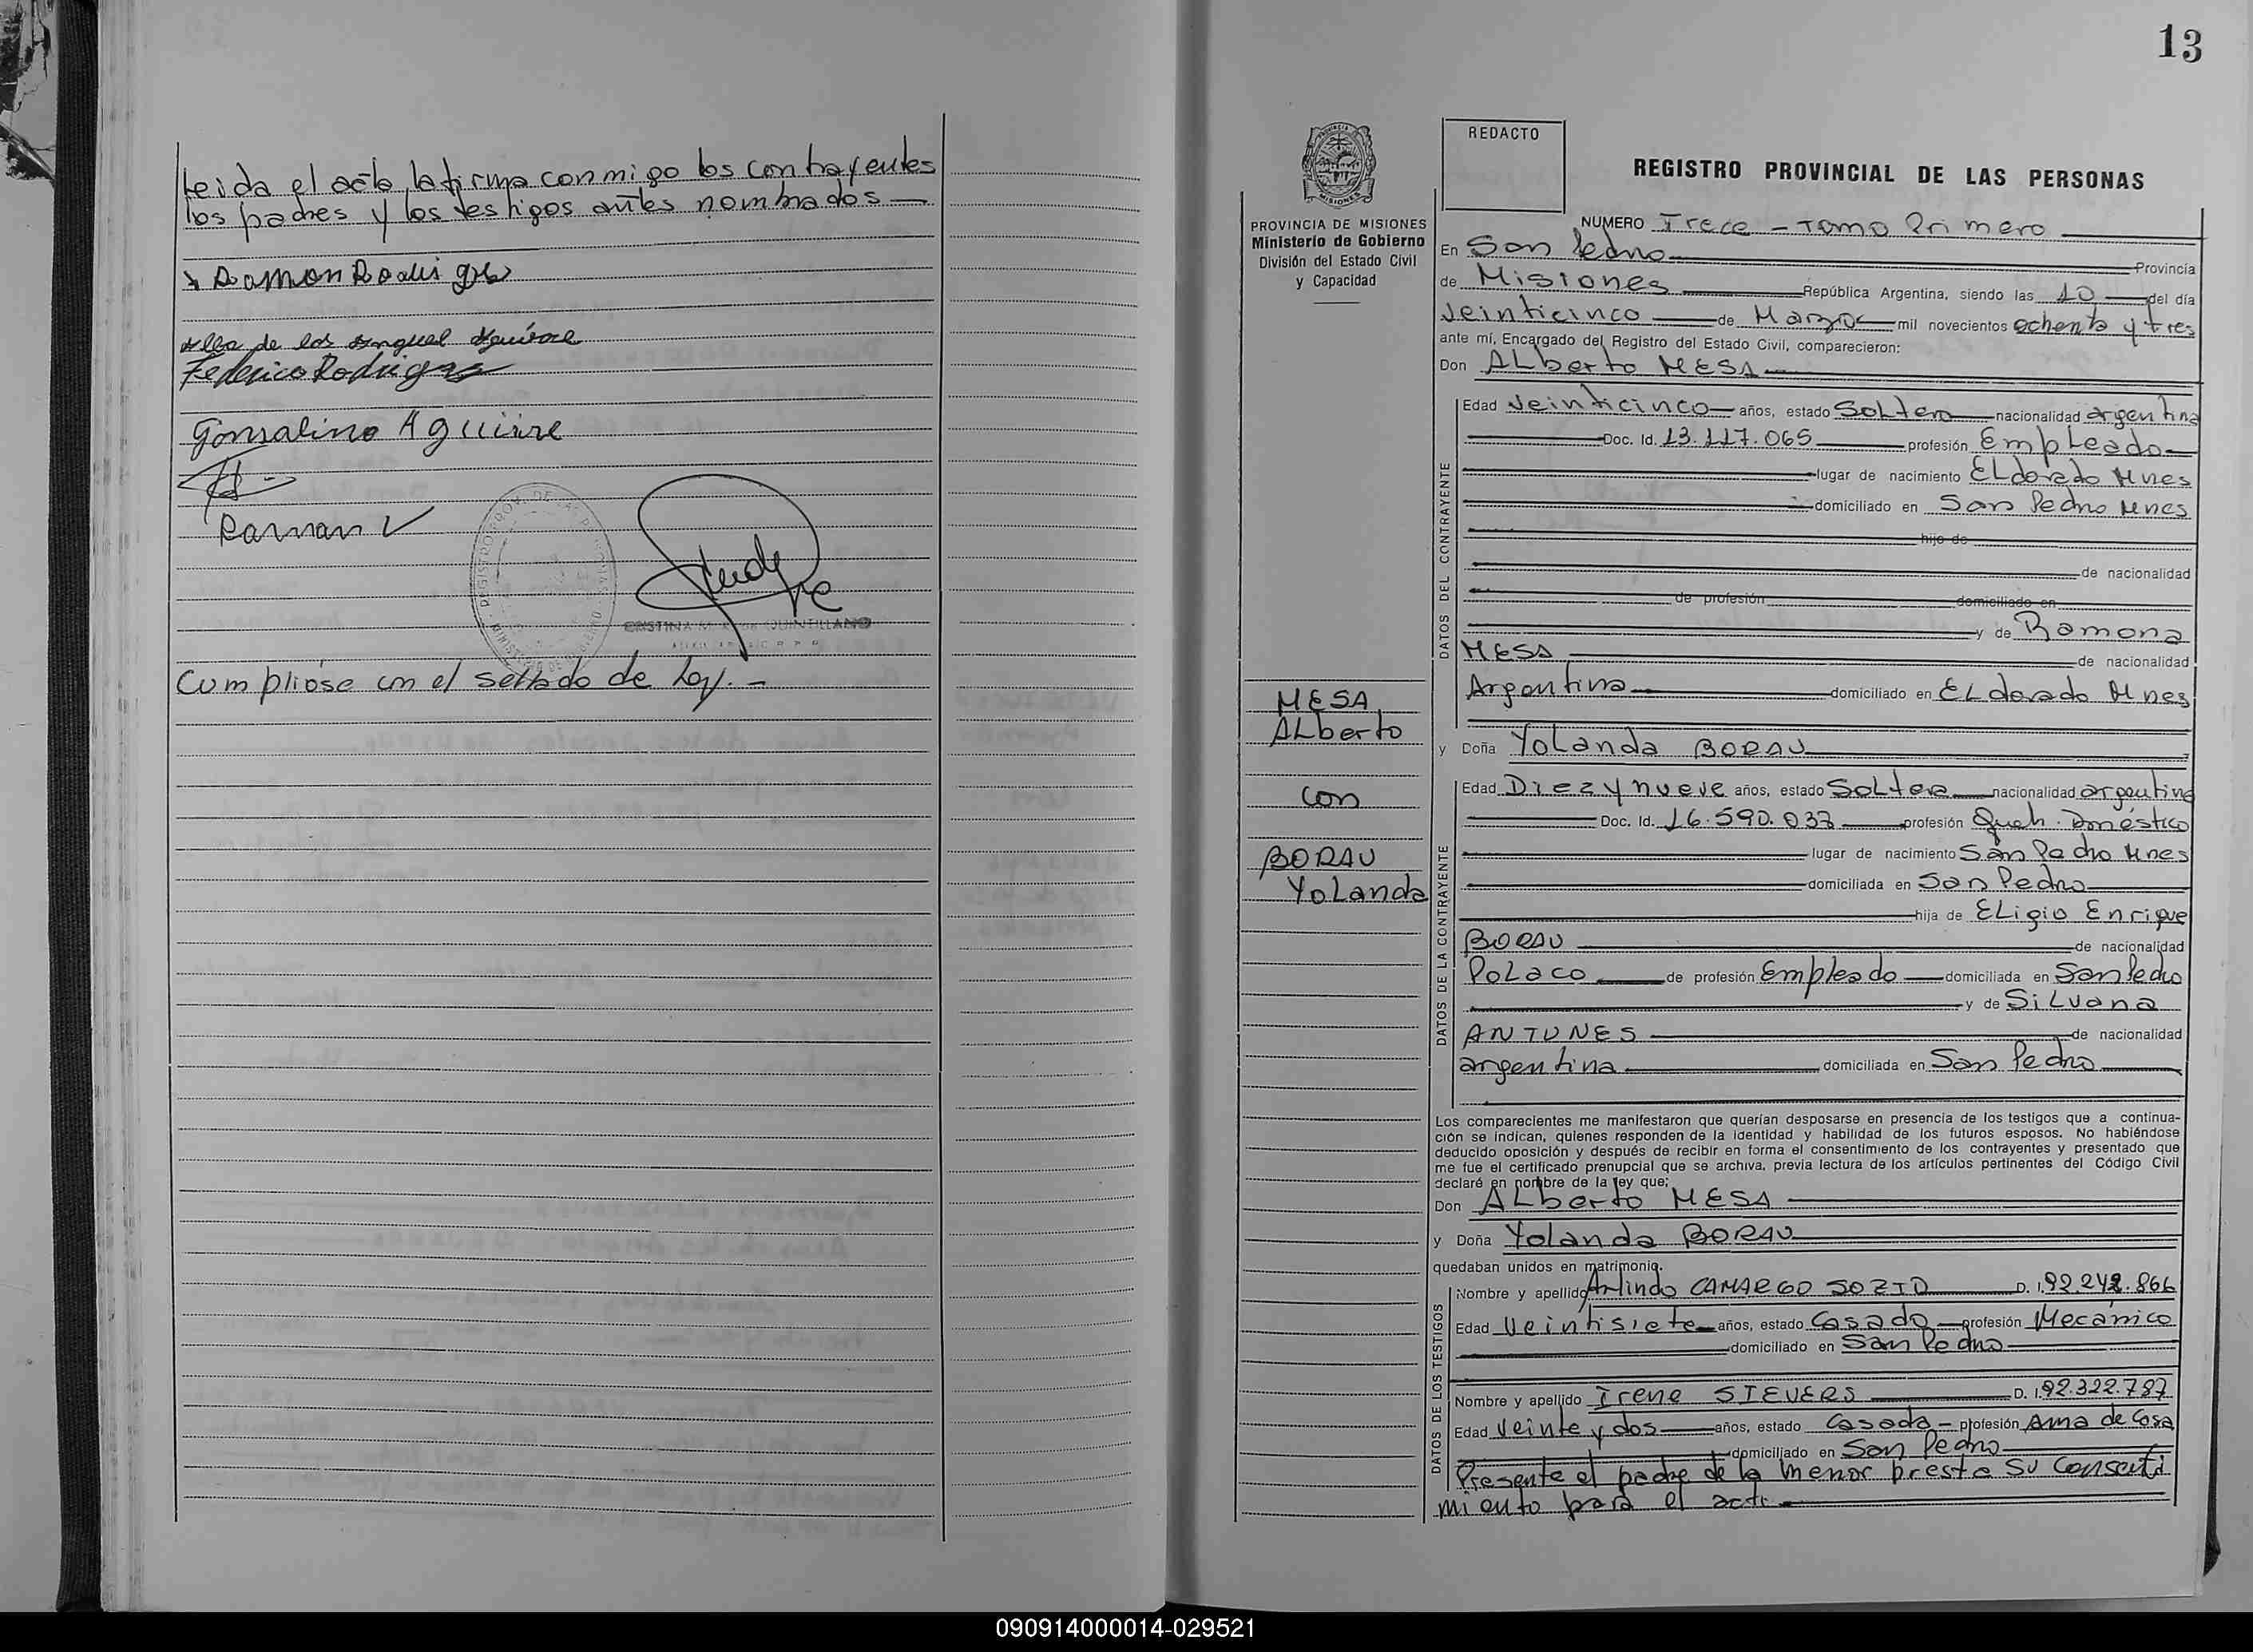 Leida el acta, la firma conmigo los contrayentes
los padres y los testigos antes nombrados —
Ramon Rodrigez
Alba de los Angeles Aguirre
Federico Rodrigez
Gonsalino Aguirre
Raman V
Cumpliose con el sellado de Ley. -
13
REDACTO
REGISTRO PROVINCIAL DE LAS PERSONAS
PROVINCIA DE MISIONES
Ministerio de Gobierno
División del Estado Civil
y Capacidad
NUMERO Trece - Tomo Primero
En San Pedro Provincia
de Misiones República Argentina, siendo las 10 del día
Veinticinco de Marzo mil novecientos ochenta y tres
ante mí, Encargado del Registro del Estado Civil, comparecieron:
Don ALberto MESA
DATOS DEL CONTRAYENTE
Edad Veinticinco años, estado SoLtero nacionalidad argentina
Doc. Id. 13.117.065 profesión EmpLeado
lugar de nacimiento ELdorado Mnes
domiciliado en San Pedro Mnes
hijo de
de nacionalidad
de profesión domiciliado en
y de Ramona
MESA de nacionalidad
Argentina domiciliado en ELdorado Mnes
MESA
ALberto
con
BORAU
YoLanda
y Doña YoLanda BORAU
DATOS DE LA CONTRAYENTE
Edad Diez y nueve años, estado SoLtera nacionalidad argentina
Doc. Id. 16.590.037 profesión Queh. Doméstico
lugar de nacimiento San Pedro Mnes
domiciliada en San Pedro
hija de ELigio Enrique
BORAU de nacionalidad
PoLaco de profesión Empleado domiciliada en San Pedro
y de SiLvana
ANTUNES de nacionalidad
argentina domiciliada en San Pedro
Los comparecientes me manifestaron que querían desposarse en presencia de los testigos que a continua-
ción se indican, quienes responden de la identidad y habilidad de los futuros esposos. No habiéndose
deducido oposición y después de recibir en forma el consentimiento de los contrayentes y presentado que
me fue el certificado prenupcial que se archiva, previa lectura de los artículos pertinentes del Código Civil
declaré en nombre de la ley que;
Don ALberto MESA
y Doña Yolanda BORAU
quedaban unidos en matrimonio.
DATOS DE LOS TESTIGOS
Nombre y apellido Arlindo CAMARGO D. I. 92.242.866
Edad Veintisiete años, estado Casado profesión Mecánico
domiciliado en San Pedro
Nombre y apellido Irene SIEVERS D. I. 92.322.787
Edad Veinte y dos años, estado Casada - profesión Ama de Casa
domiciliado en San Pedro
Presente el padre de la menor presta su consenti
miento para el acto
090914000014-029521